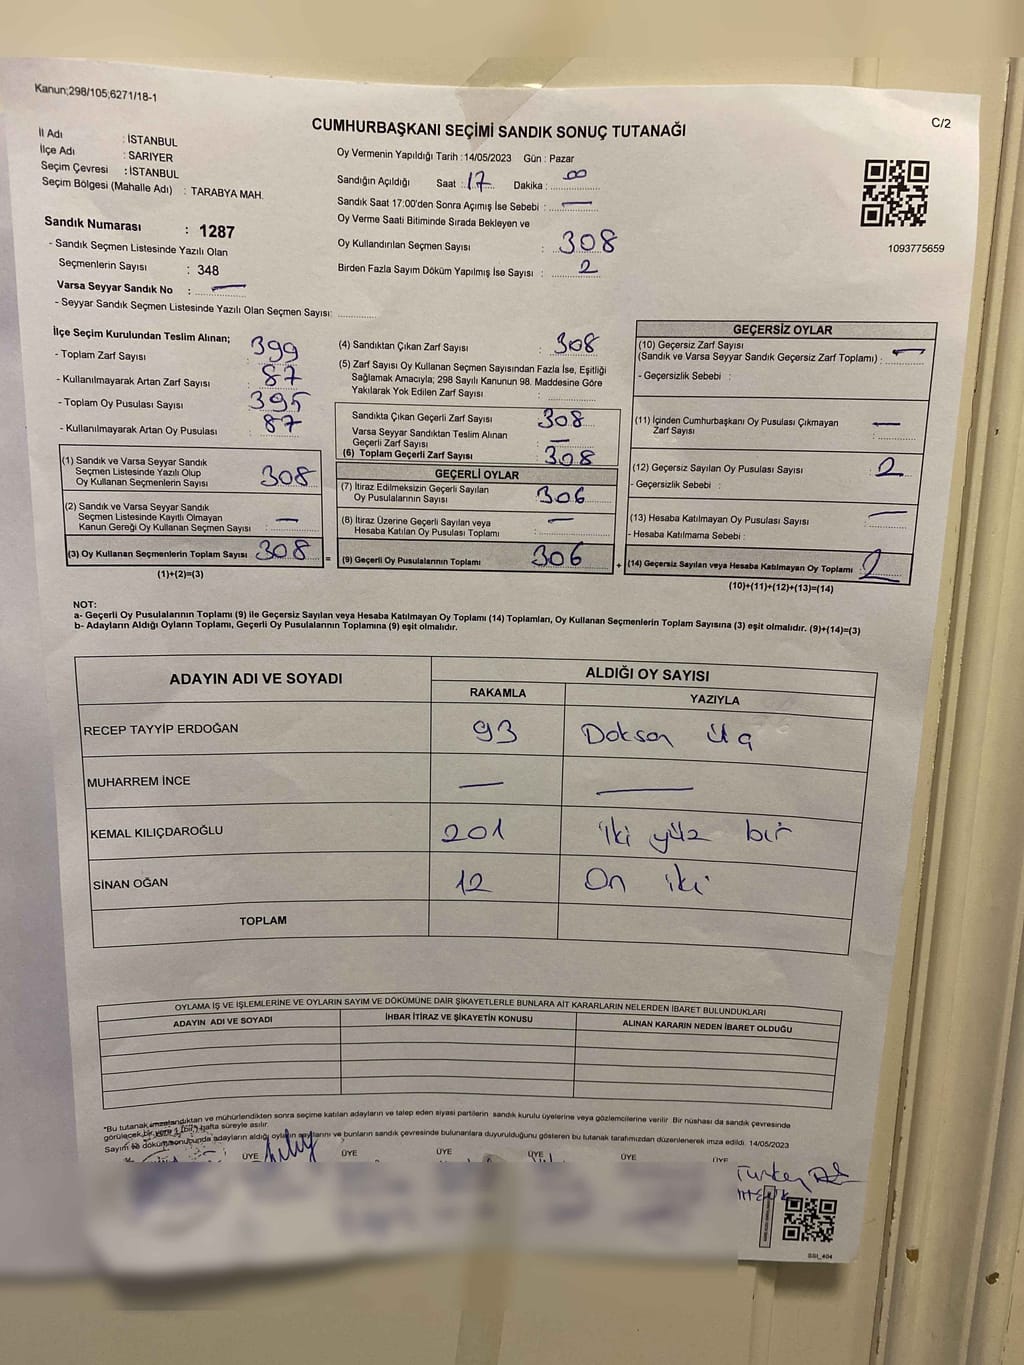 Kanun;298/105,6271/18-1
C/2
CUMHURBAŞKANI SEÇİMİ SANDIK SONUÇ TUTANAĞI
İl Adı : İSTANBUL
İlçe Adı : SARIYER
Seçim Çevresi : İSTANBUL
Seçim Bölgesi (Mahalle Adı) : TARABYA MAH.
Oy Vermenin Yapıldığı Tarih :14/05/2023 Gün : Pazar
Sandığın Açıldığı Saat : 17 Dakika : 00
Sandık Saat 17:00'den Sonra Açımış İse Sebebi : —
Oy Verme Saati Bitiminde Sırada Bekleyen ve
Oy Kullandırılan Seçmen Sayısı : 308
Birden Fazla Sayım Döküm Yapılmış İse Sayısı : 2
1093775659
Sandık Numarası : 1287
- Sandık Seçmen Listesinde Yazılı Olan
Seçmenlerin Sayısı : 348
Varsa Seyyar Sandık No : —
- Seyyar Sandık Seçmen Listesinde Yazılı Olan Seçmen Sayısı:
İlçe Seçim Kurulundan Teslim Alınan;
- Toplam Zarf Sayısı : 399
- Kullanılmayarak Artan Zarf Sayısı : 87
- Toplam Oy Pusulası Sayısı : 395
- Kullanılmayarak Artan Oy Pusulası : 87
(1) Sandık ve Varsa Seyyar Sandık
Seçmen Listesinde Yazılı Olup
Oy Kullanan Seçmenlerin Sayısı : 308
(2) Sandık ve Varsa Seyyar Sandık
Seçmen Listesinde Kayıtlı Olmayan
Kanun Gereği Oy Kullanan Seçmen Sayısı : —
(3) Oy Kullanan Seçmenlerin Toplam Sayısı : 308 =
(1)+(2)=(3)
(4) Sandıktan Çıkan Zarf Sayısı : 308
(5) Zarf Sayısı Oy Kullanan Seçmen Sayısından Fazla İse, Eşitliği
Sağlamak Amacıyla; 298 Sayılı Kanunun 98. Maddesine Göre
Yakılarak Yok Edilen Zarf Sayısı :
Sandıkta Çıkan Geçerli Zarf Sayısı : 308
Varsa Seyyar Sandıktan Teslim Alınan
Geçerli Zarf Sayısı : —
(6) Toplam Geçerli Zarf Sayısı : 308
GEÇERLİ OYLAR
(7) İtiraz Edilmeksizin Geçerli Sayılan
Oy Pusulalarının Sayısı : 306
(8) İtiraz Üzerine Geçerli Sayılan veya
Hesaba Katılan Oy Pusulası Toplamı : —
(9) Geçerli Oy Pusulalarının Toplamı 306 +
GEÇERSİZ OYLAR
(10) Geçersiz Zarf Sayısı
(Sandık ve Varsa Seyyar Sandık Geçersiz Zarf Toplamı) : —
- Geçersizlik Sebebi :
(11) İçinden Cumhurbaşkanı Oy Pusulası Çıkmayan
Zarf Sayısı : —
(12) Geçersiz Sayılan Oy Pusulası Sayısı : 2
- Geçersizlik Sebebi :
(13) Hesaba Katılmayan Oy Pusulası Sayısı : —
- Hesaba Katılmama Sebebi :
(14) Geçersiz Sayılan veya Hesaba Katılmayan Oy Toplamı : 2
(10)+(11)+(12)+(13)=(14)
NOT:
a- Geçerli Oy Pusulalarının Toplamı (9) ile Geçersiz Sayılan veya Hesaba Katılmayan Oy Toplamı (14) Toplamları, Oy Kullanan Seçmenlerin Toplam Sayısına (3) eşit olmalıdır. (9)+(14)=(3)
b- Adayların Aldığı Oyların Toplamı, Geçerli Oy Pusulalarının Toplamına (9) eşit olmalıdır.
ADAYIN ADI VE SOYADI
ALDIĞI OY SAYISI
RAKAMLA YAZIYLA
RECEP TAYYİP ERDOĞAN 93 Doksan üç
MUHARREM İNCE — —
KEMAL KILIÇDAROĞLU 201 iki yüz bir
SİNAN OĞAN 12 On iki
TOPLAM
OYLAMA İŞ VE İŞLEMLERİNE VE OYLARIN SAYIM VE DÖKÜMÜNE DAİR ŞİKAYETLERLE BUNLARA AİT KARARLARIN NELERDEN İBARET BULUNDUKLARI
ADAYIN ADI VE SOYADI İHBAR İTİRAZ VE ŞİKAYETİN KONUSU ALINAN KARARIN NEDEN İBARET OLDUĞU
"Bu tutanak imzalandıktan ve mühürlendikten sonra seçime katılan adayların ve talep eden siyasi partilerin sandık kurulu üyelerine veya gözlemcilerine verilir. Bir nüshası da sandık çevresinde
görülecek bir yere 1 (bir) hafta süreyle asılır.
Sayım ve döküm sonunda adayların aldığı oyların sayılarını ve bunların sandık çevresinde bulunanlara duyurulduğunu gösteren bu tutanak tarafımızdan düzenlenerek imza edildi. 14/05/2023
ÜYE ÜYE ÜYE ÜYE ÜYE ÜYE
SSI_404